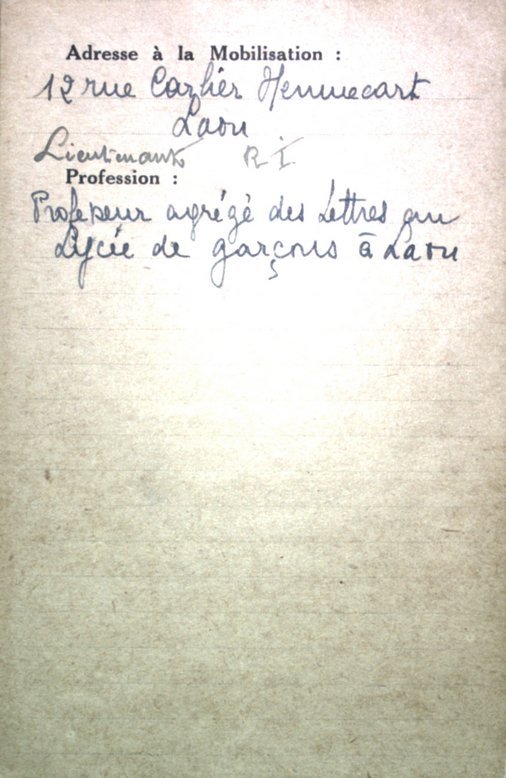 Adresse à la Mobilisation :
12 rue Carlier Hennecart
Laon
Lieutenant R I
Profession :
Professeur agrégé des Lettres au
Lycée de garçons à Laon